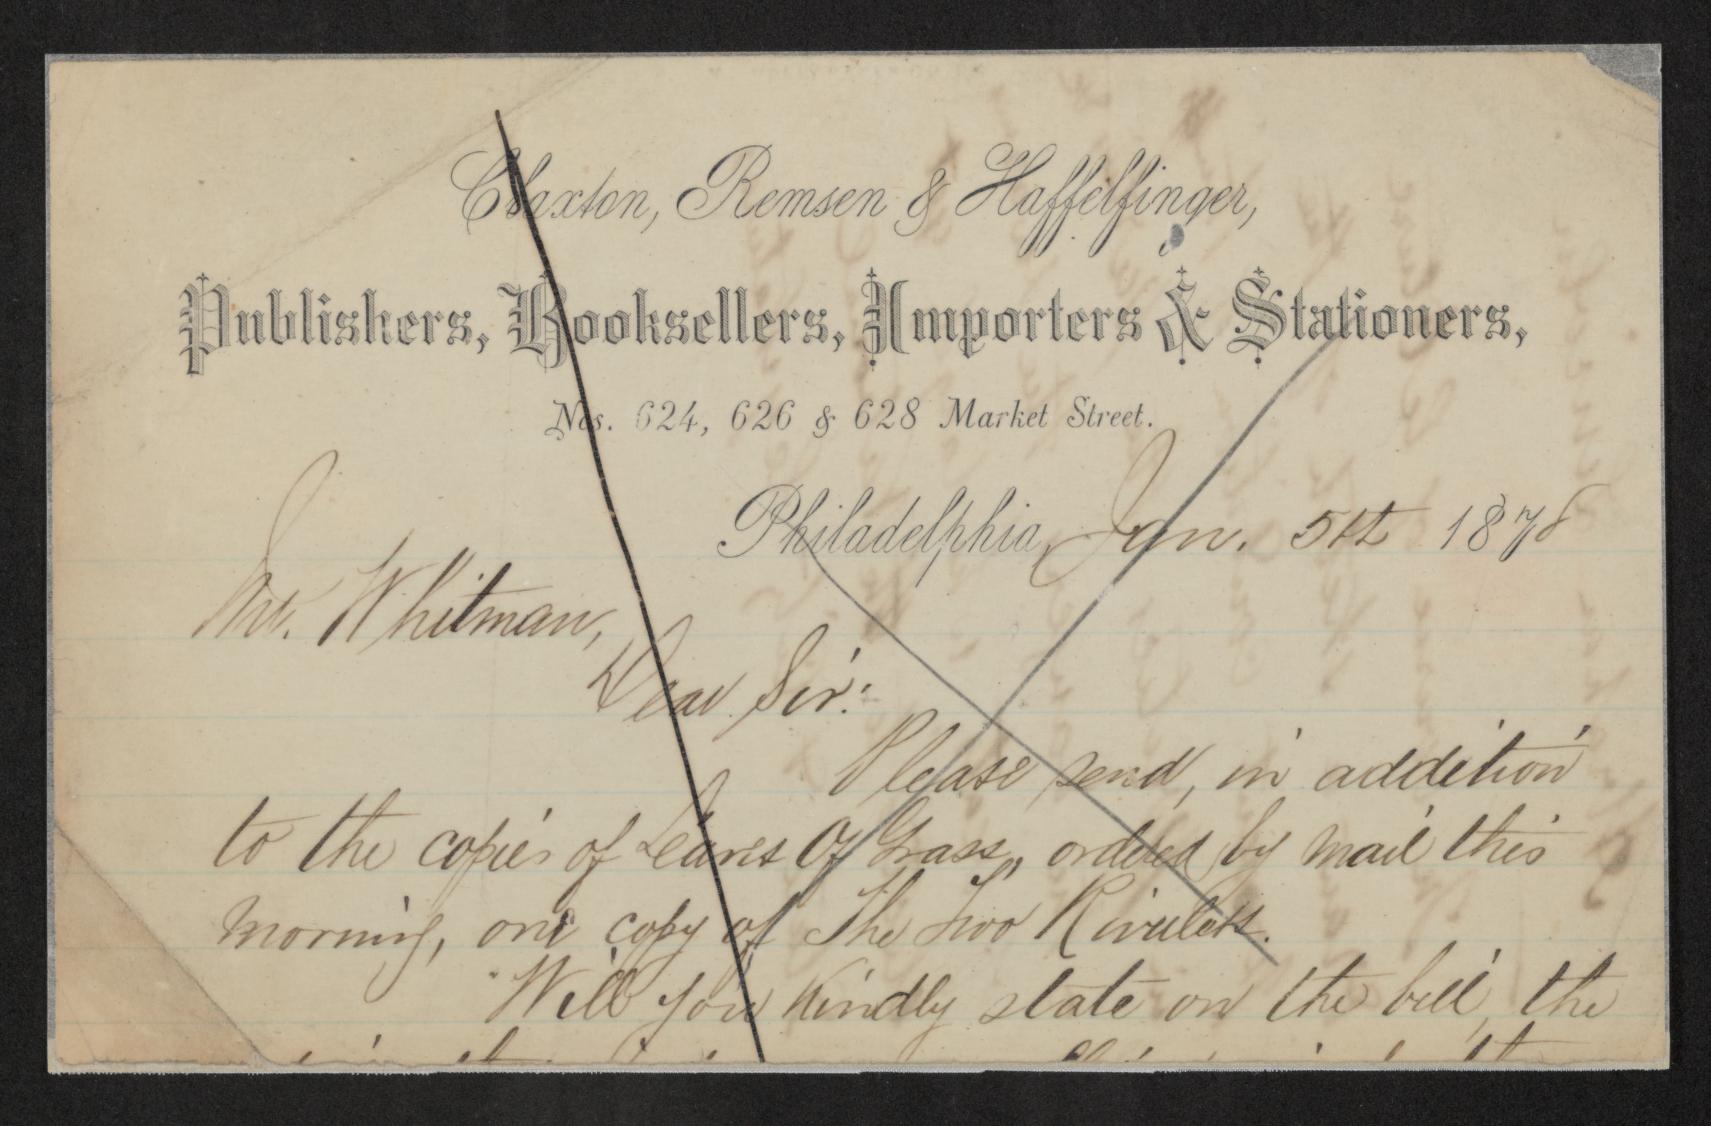 Claxton, Remsen & Haffelfinger,
Publishers, Booksellers, Importers & Stationers,
Nos. 624, 626 & 628 Market Street.
Philadelphia, Jan. 5th 1878
Mr. Whitman,
Dear Sir:
Please send, in addition
to the copies of Leaves Of Grass, ordered by mail this
morning, one copy of The Two Rivulets.
Will you kindly state on the bill, the